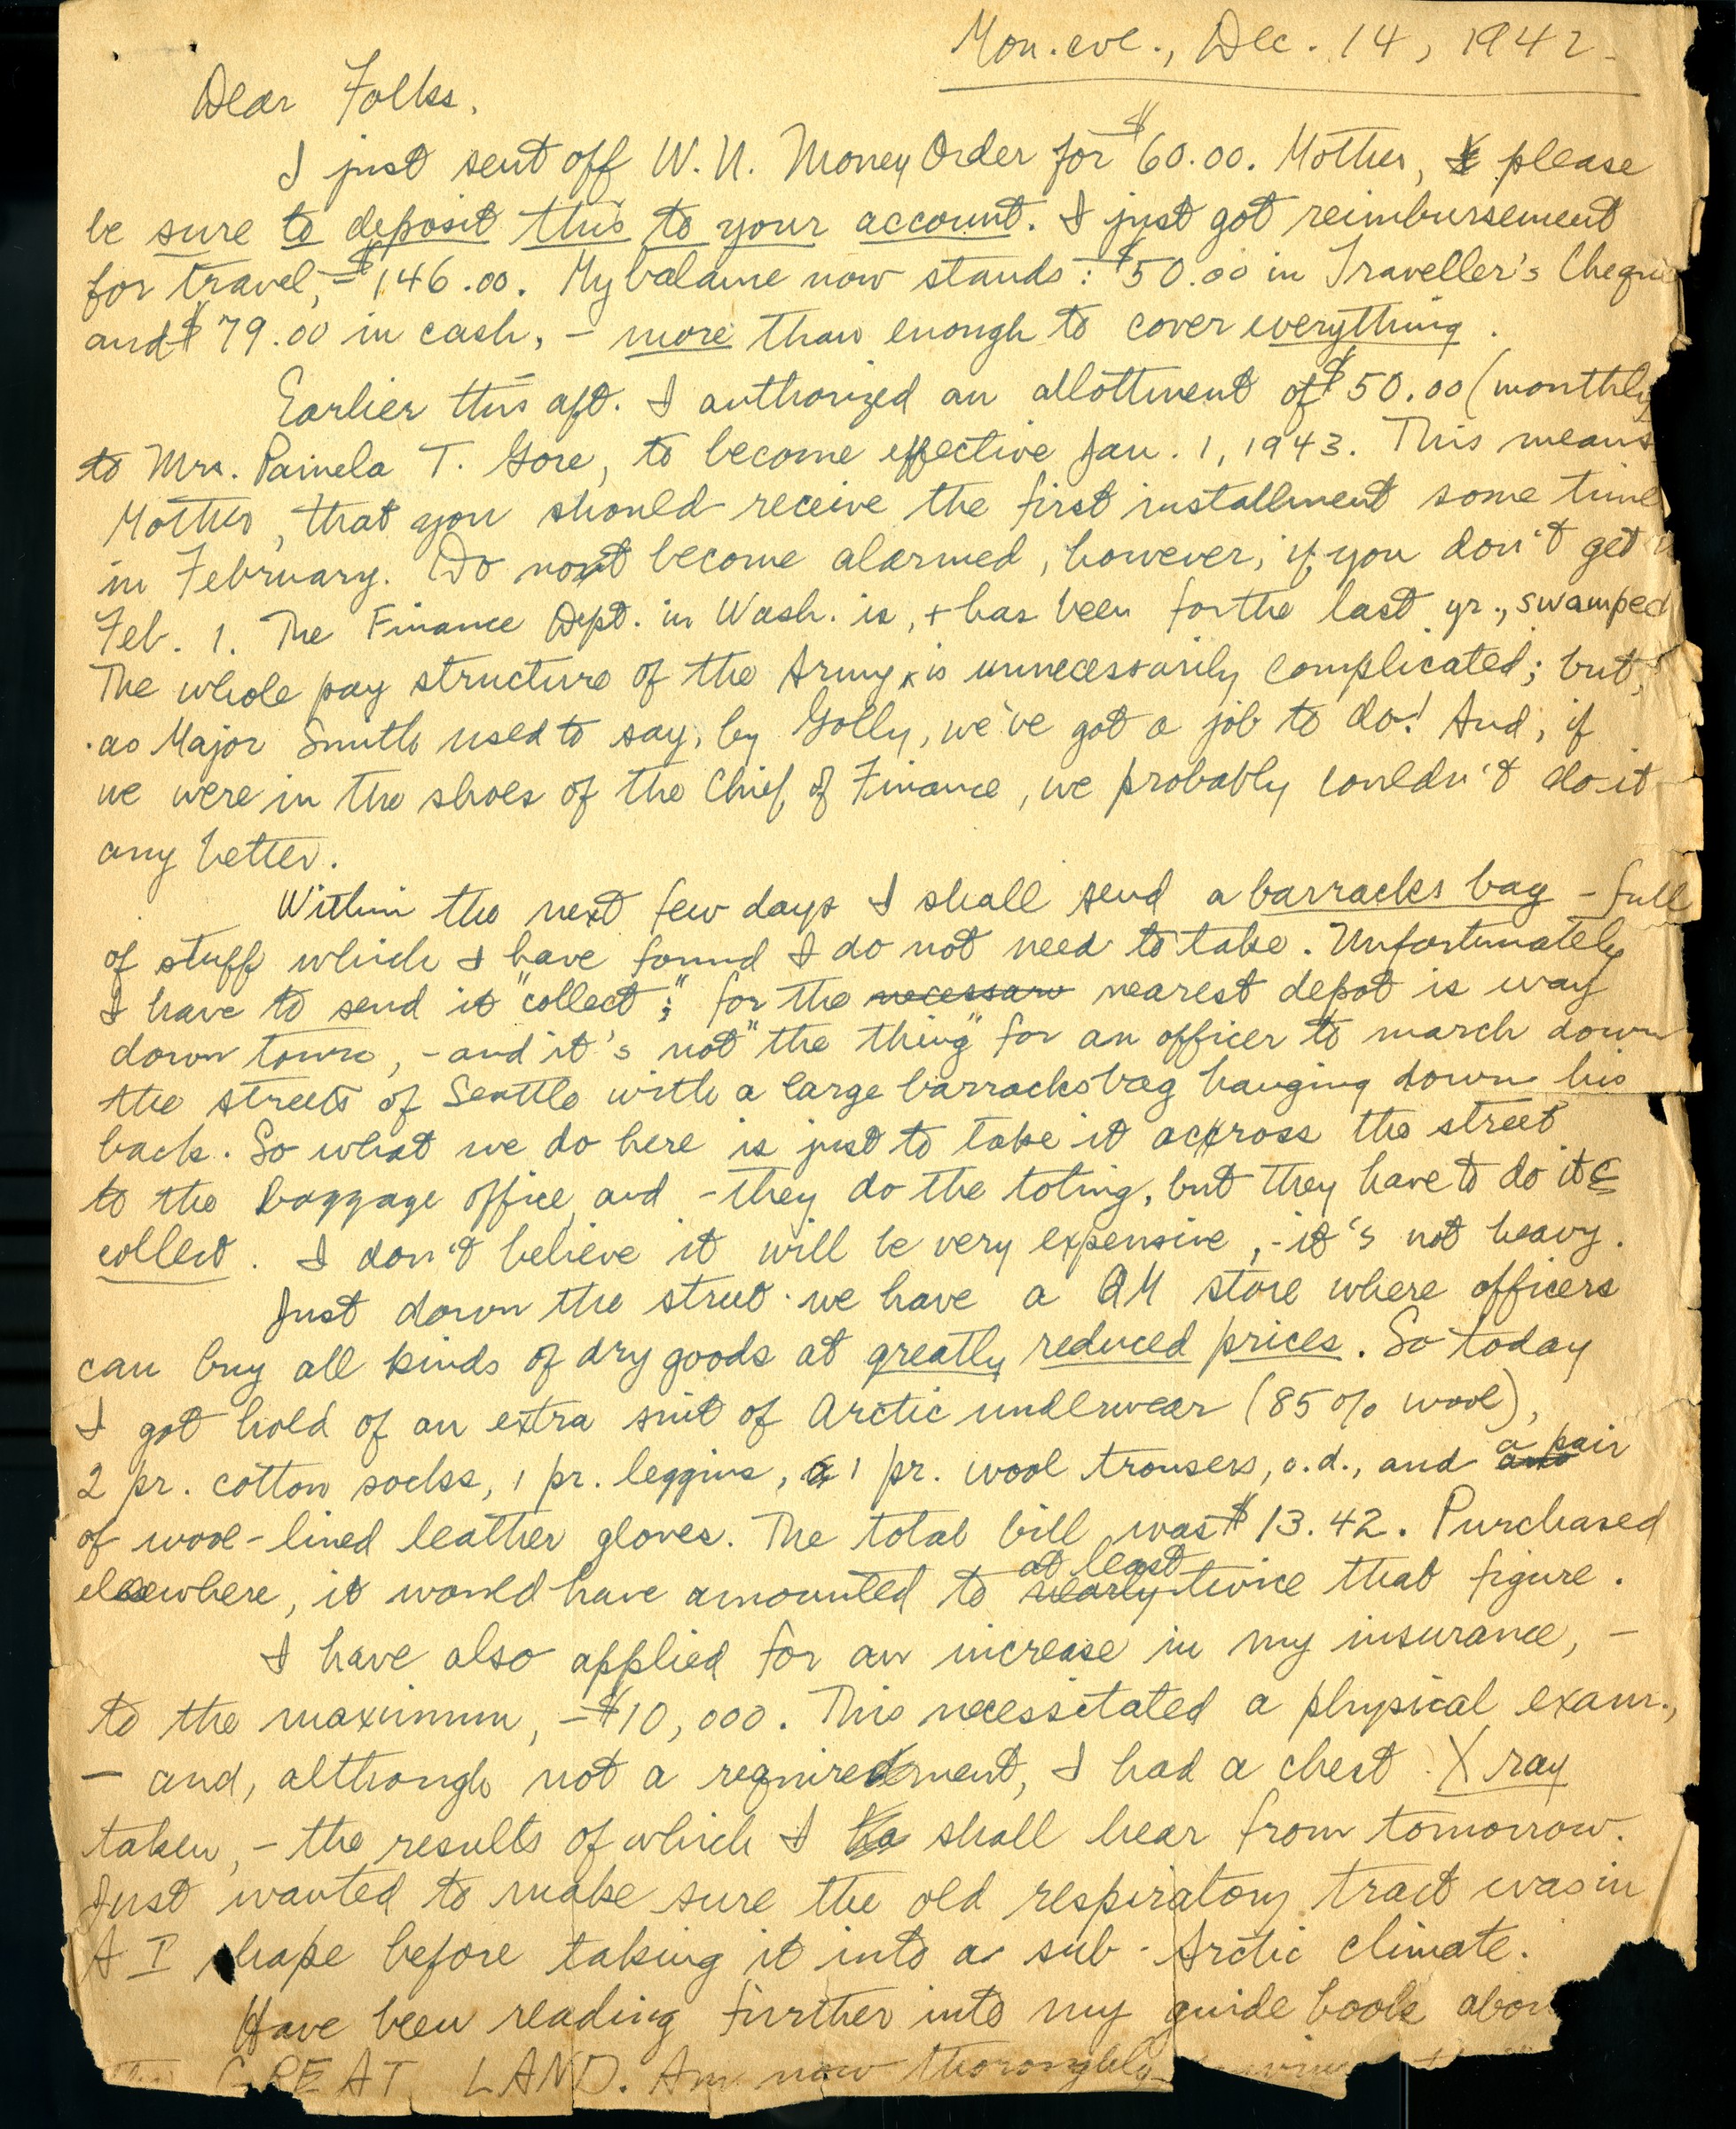 Mon. eve., Dec. 14, 1942.
Dear Folks,
I just sent off W. U. Money Order for $60.00. Mother, please
be sure to deposit this to your account. I just got reimbursement
for travel, – $146.00. My balance now stands: $50.00 in Traveller's Cheque
and $79.00 in cash, – more than enough to cover everything.
Earlier this aft. I authorized an allottment of $50.00 (monthly
to Mrs. Pamela T. Gore, to become effective Jan. 1, 1943. This means
Mother, that you should receive the first installment some time
in February. Do not become alarmed, however, if you don't get
Feb. 1. The Finance Dept. in Wash. is, + has been for the last yr., swamped
The whole pay structure of the Army is unnecessarily complicated; but,
as Major Smith used to say, by Golly, we've got a job to do! And, if
we were in the shoes of the Chief of Finance, we probably couldn't do it
any better.
Within the next few days I shall send a barracks bag – full
of stuff which I have found I do not need to take. Unfortunately
I have to send it "collect;" for the necessary nearest depot is way
down town, – and it's not "the thing" for an officer to march down
the streets of Seattle with a large barracksbag hanging down his
back. So what we do here is just to take it across the street
to the baggage office, and – they do the toting, but they have to do it c
collect. I don't believe it will be very expensive, – it's not heavy.
Just down the street we have a QM store where officers
can buy all kinds of dry goods at greatly reduced prices. So today
I got hold of an extra suit of Arctic underwear (85% wool),
2 pr. cotton socks, 1 pr. leggins, 1 pr. wool trousers, o.d., and a pair
of wool-lined leather gloves. The total bill was $13.42. Purchased
elsewhere, it would have amounted to nearly at least twice that figure.
I have also applied for an increase in my insurance, –
to the maximum, – $10,000. This necessitated a physical exam.,
– and, although not a requirement, I had a chest X ray
taken, – the results of which I ha shall hear from tomorrow.
Just wanted to make sure the old respiratory tract was in
A I shape before taking it into a sub-Arctic climate.
Have been reading further into my guide book abou
GREAT LAND. Am now thoroughly